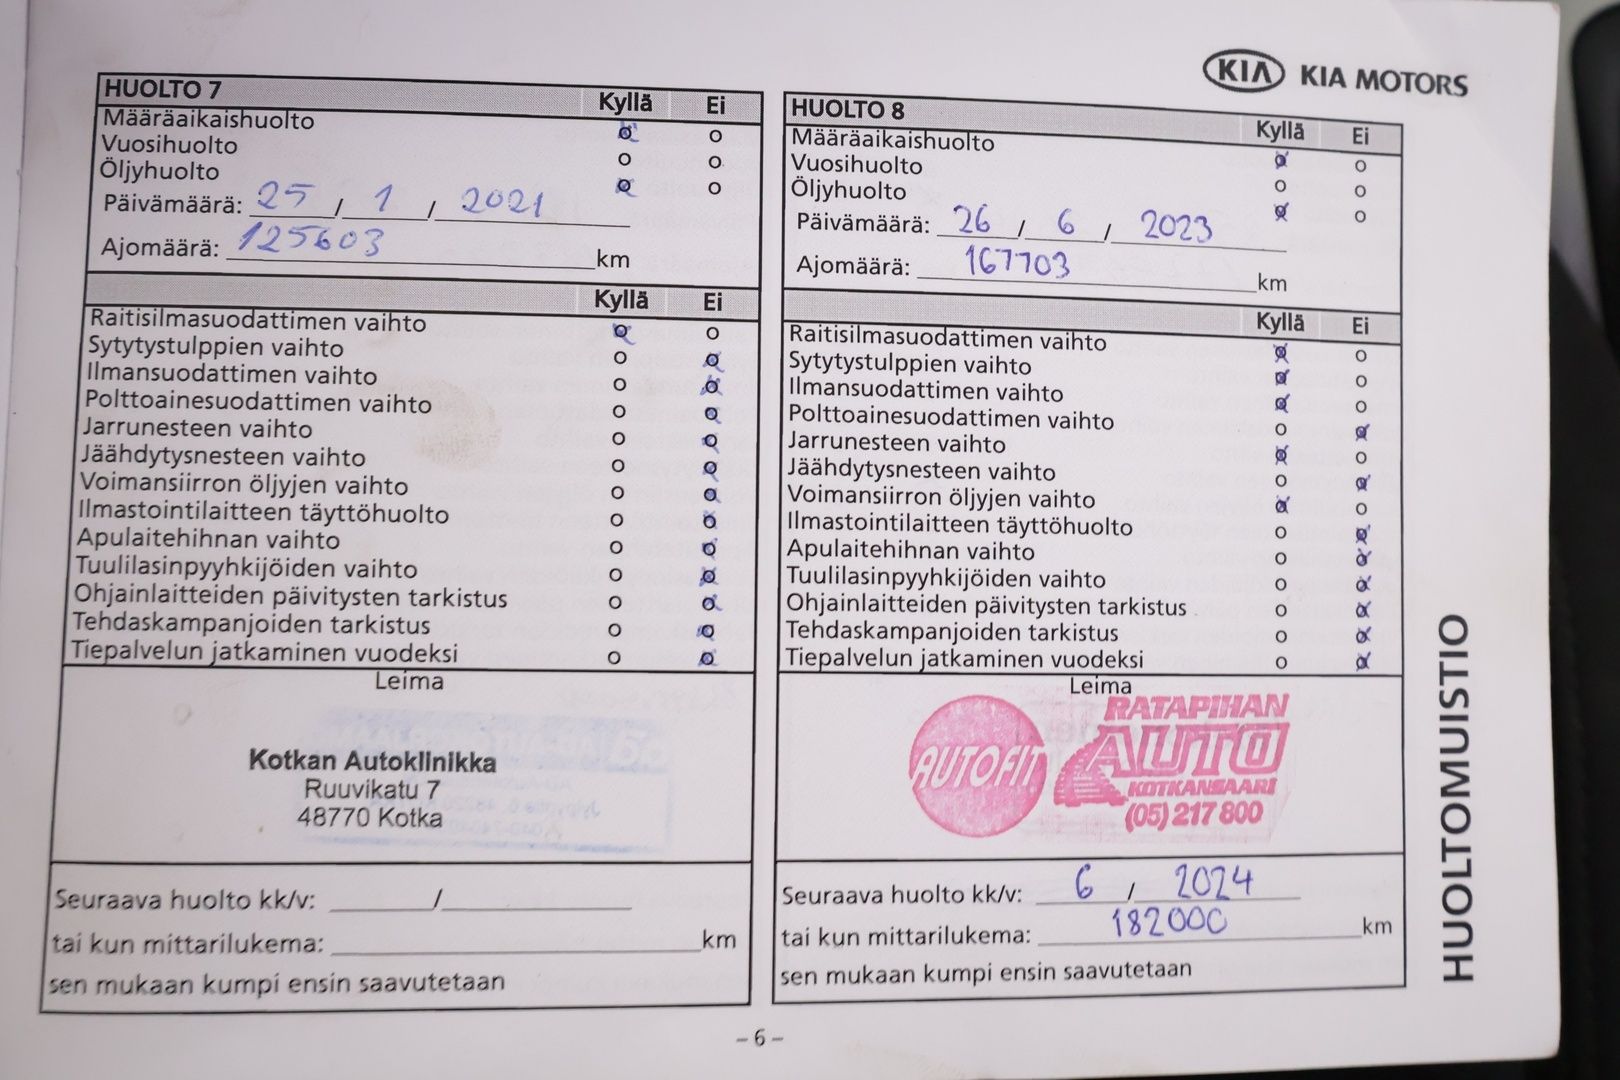 KIA KIA MOTORS
HUOLTO 7
Kyllä Ei
Määräaikaishuolto
Vuosihuolto
Öljyhuolto
Päivämäärä: 25 / 1 / 2021
Ajomäärä: 125603 km
Kyllä Ei
Raitisilmasuodattimen vaihto
Sytytystulppien vaihto
Ilmansuodattimen vaihto
Polttoainesuodattimen vaihto
Jarrunesteen vaihto
Jäähdytysnesteen vaihto
Voimansiirron öljyjen vaihto
Ilmastointilaitteen täyttöhuolto
Apulaitehihnan vaihto
Tuulilasinpyyhkijöiden vaihto
Ohjainlaitteiden päivitysten tarkistus
Tehdaskampanjoiden tarkistus
Tiepalvelun jatkaminen vuodeksi
Leima
Kotkan Autoklinikka
Ruuvikatu 7
48770 Kotka
Seuraava huolto kk/v: /
tai kun mittarilukema: km
sen mukaan kumpi ensin saavutetaan
HUOLTO 8
Kyllä Ei
Määräaikaishuolto
Vuosihuolto
Öljyhuolto
Päivämäärä: 26 / 6 / 2023
Ajomäärä: 167703 km
Kyllä Ei
Raitisilmasuodattimen vaihto
Sytytystulppien vaihto
Ilmansuodattimen vaihto
Polttoainesuodattimen vaihto
Jarrunesteen vaihto
Jäähdytysnesteen vaihto
Voimansiirron öljyjen vaihto
Ilmastointilaitteen täyttöhuolto
Apulaitehihnan vaihto
Tuulilasinpyyhkijöiden vaihto
Ohjainlaitteiden päivitysten tarkistus
Tehdaskampanjoiden tarkistus
Tiepalvelun jatkaminen vuodeksi
Leima
AUTOFIT
RATAPIHAN
AUTO
KOTKANSAARI
(05) 217 800
Seuraava huolto kk/v: 6 / 2024
tai kun mittarilukema: 182000 km
sen mukaan kumpi ensin saavutetaan
HUOLTOMUISTIO
– 6 –